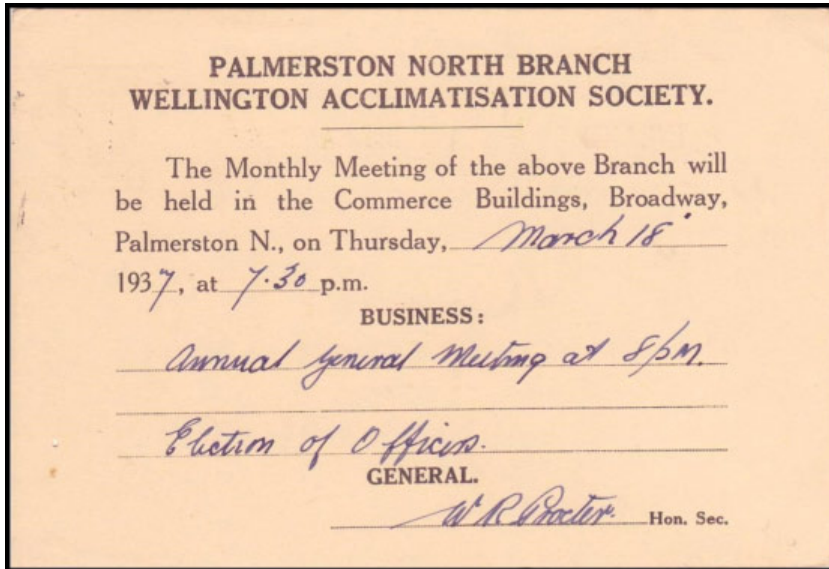 PALMERSTON NORTH BRANCH
WELLINGTON ACCLIMATISATION SOCIETY.
The Monthly Meeting of the above Branch will
be held in the Commerce Buildings, Broadway,
Palmerston N., on Thursday, March 18
1937, at 7.30 p.m.
BUSINESS:
Annual General Meeting at 8 p.m.
Election of Officers.
GENERAL.
W R Procter. Hon. Sec.